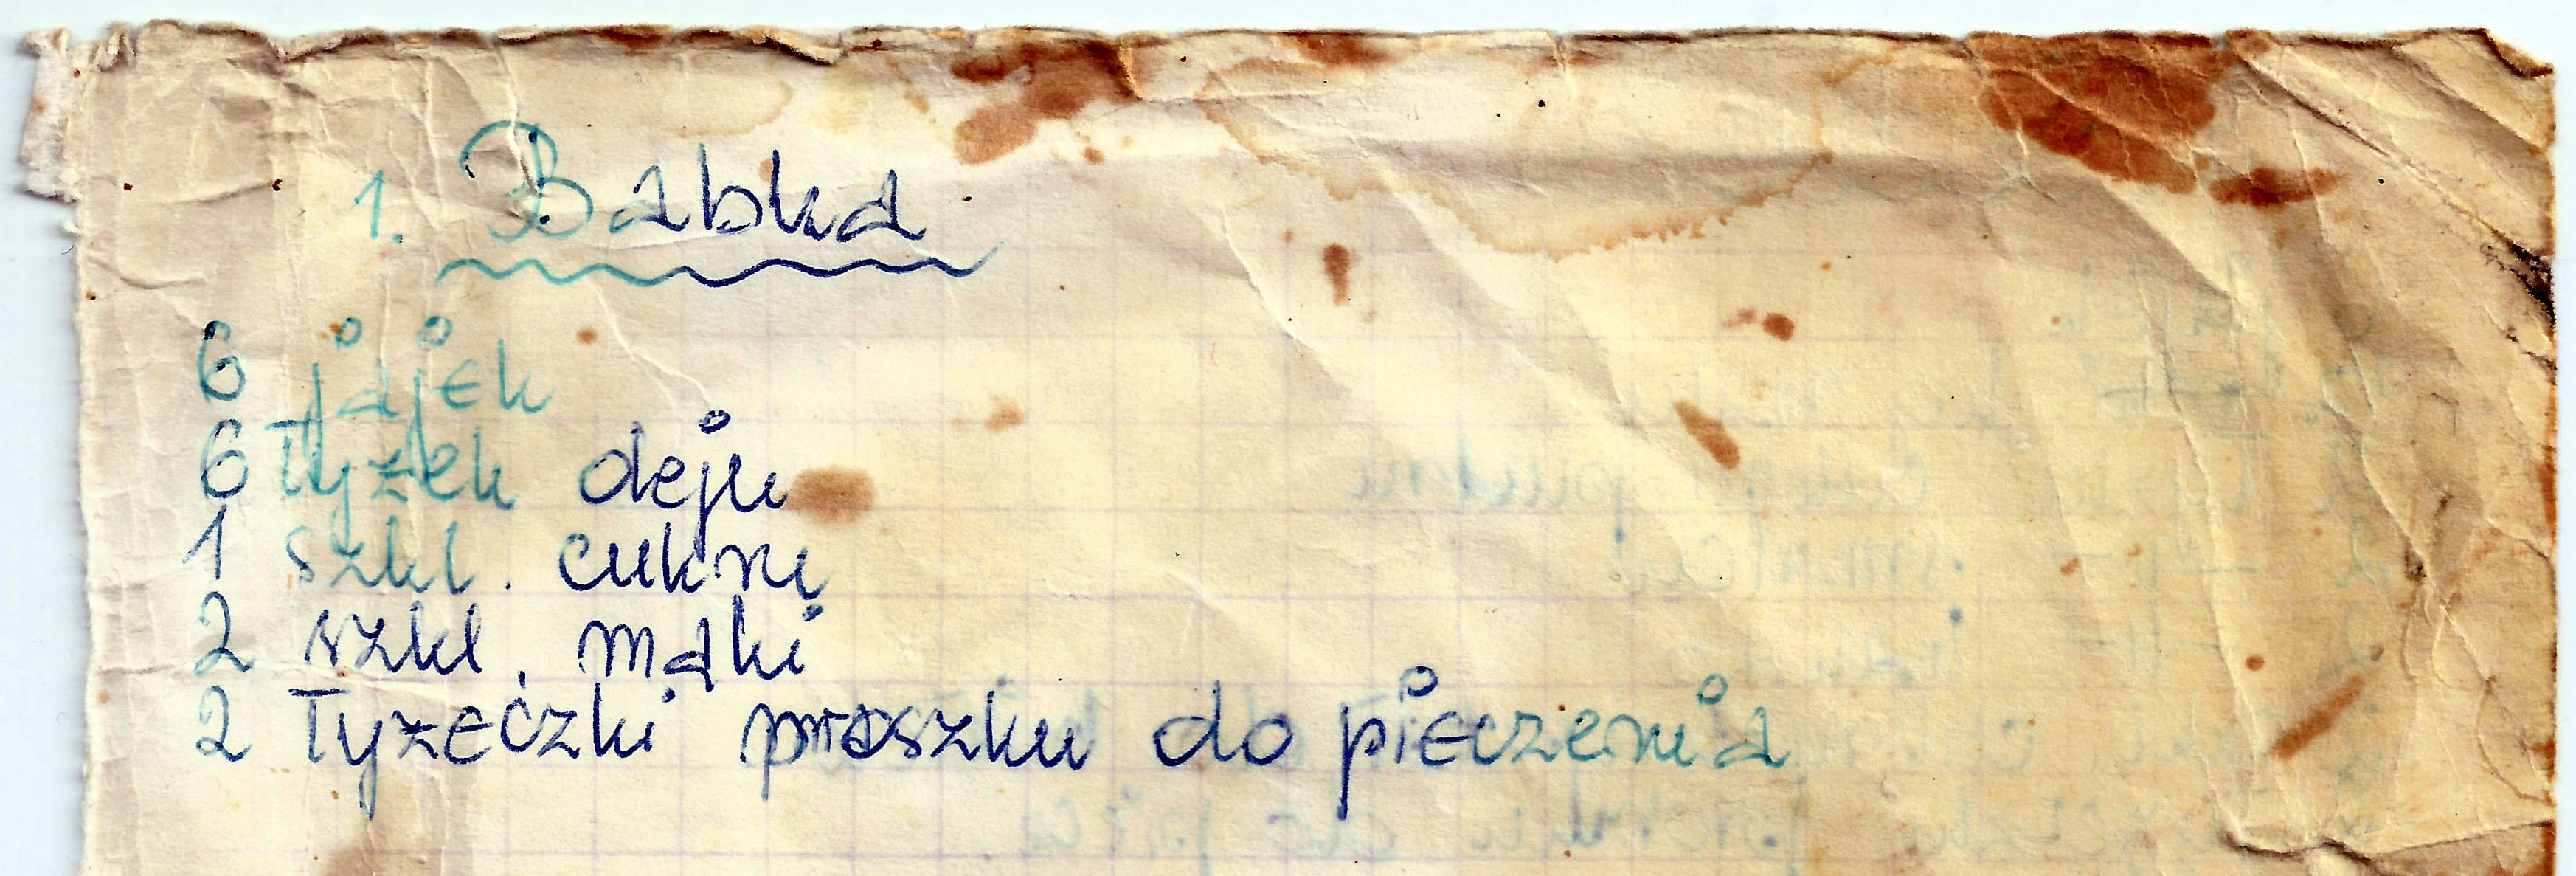 1. Babka
6 jajek
6 łyżek oleju
1 szkl. cukru
2 szkl. mąki
2 łyżeczki proszku do pieczenia